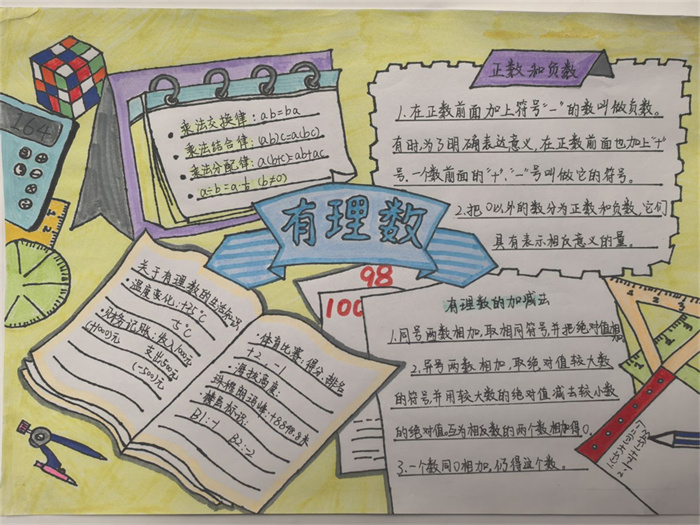 164
乘法交换律：ab=ba
乘法结合律：(ab)c=a(bc)
乘法分配律：a(b+c)=ab+ac
a÷b=a·1/b (b≠0)
正数和负数
1.在正数前面加上符号"-"的数叫做负数。
有时为了明确表达意义，在正数前面也加上"+"
号，一个数前面的"+"、"-"号叫做它的符号。
2.把0以外的数分为正数和负数，它们
具有表示相反意义的量。
有理数
98
100
关于有理数的生活知识
·温度变化：+25℃
-5℃
·财务记账：收入1000元
(+1000)元
支出500元
(-500)元
·体育比赛：得分·排名
+2 -1
·海拔高度：
珠穆朗玛峰：+8848.8米
楼层标识：
B1:-1 B2:-2
有理数的加减法
1.同号两数相加，取相同符号，并把绝对值相加
2.异号两数相加，取绝对值较大数
的符号，并用较大数的绝对值减去较小数
的绝对值。互为相反数的两个数相加得0。
3.一个数同0相加，仍得这个数。